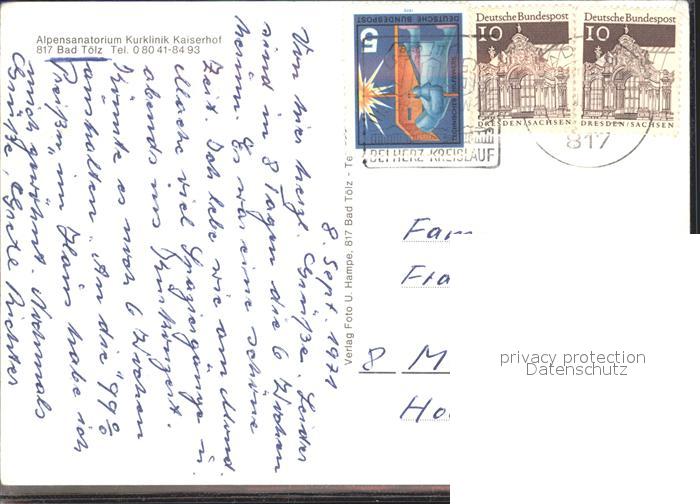 Alpensanatorium Kurklinik Kaiserhof
817 Bad Tölz Tel. 0 80 41-84 93
8. Sept. 1971
Von hier herzl. Grüße. Leider
sind in 8 Tagen die 6 Wochen
herum. Es war eine schöne
Zeit. Ich lebe wie am Mond.
Mache viel Spaziergänge u.
abends ins Kurkonzert.
Könnte es noch 6 Wochen
aushalten. An die "99%
Preißn" im Haus habe ich
mich gewöhnt. Nochmals
Grüße, Grete Richter
Verlag Foto U. Hampe, 817 Bad Tölz - Te
DEUTSCHE BUNDESPOST
5
Deutsche Bundespost
10
DRESDEN/SACHSEN
Deutsche Bundespost
10
DRESDEN/SACHSEN
BEI HERZ-KREISLAUF
817
Fam
Fra
8 M
Ho
privacy protection
Datenschutz